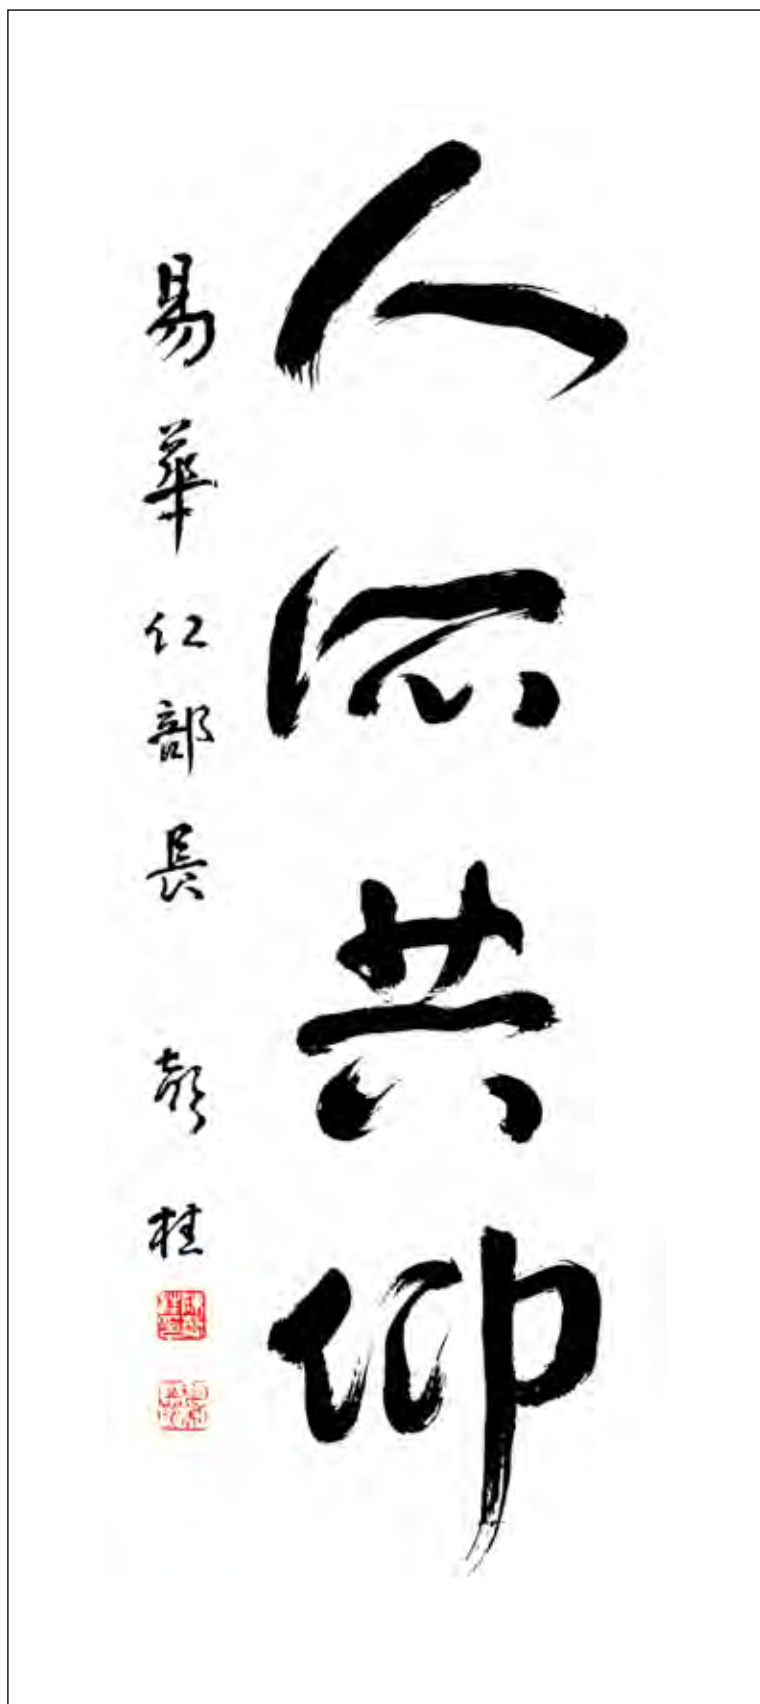 人所共仰
易華仁部長 彭桂